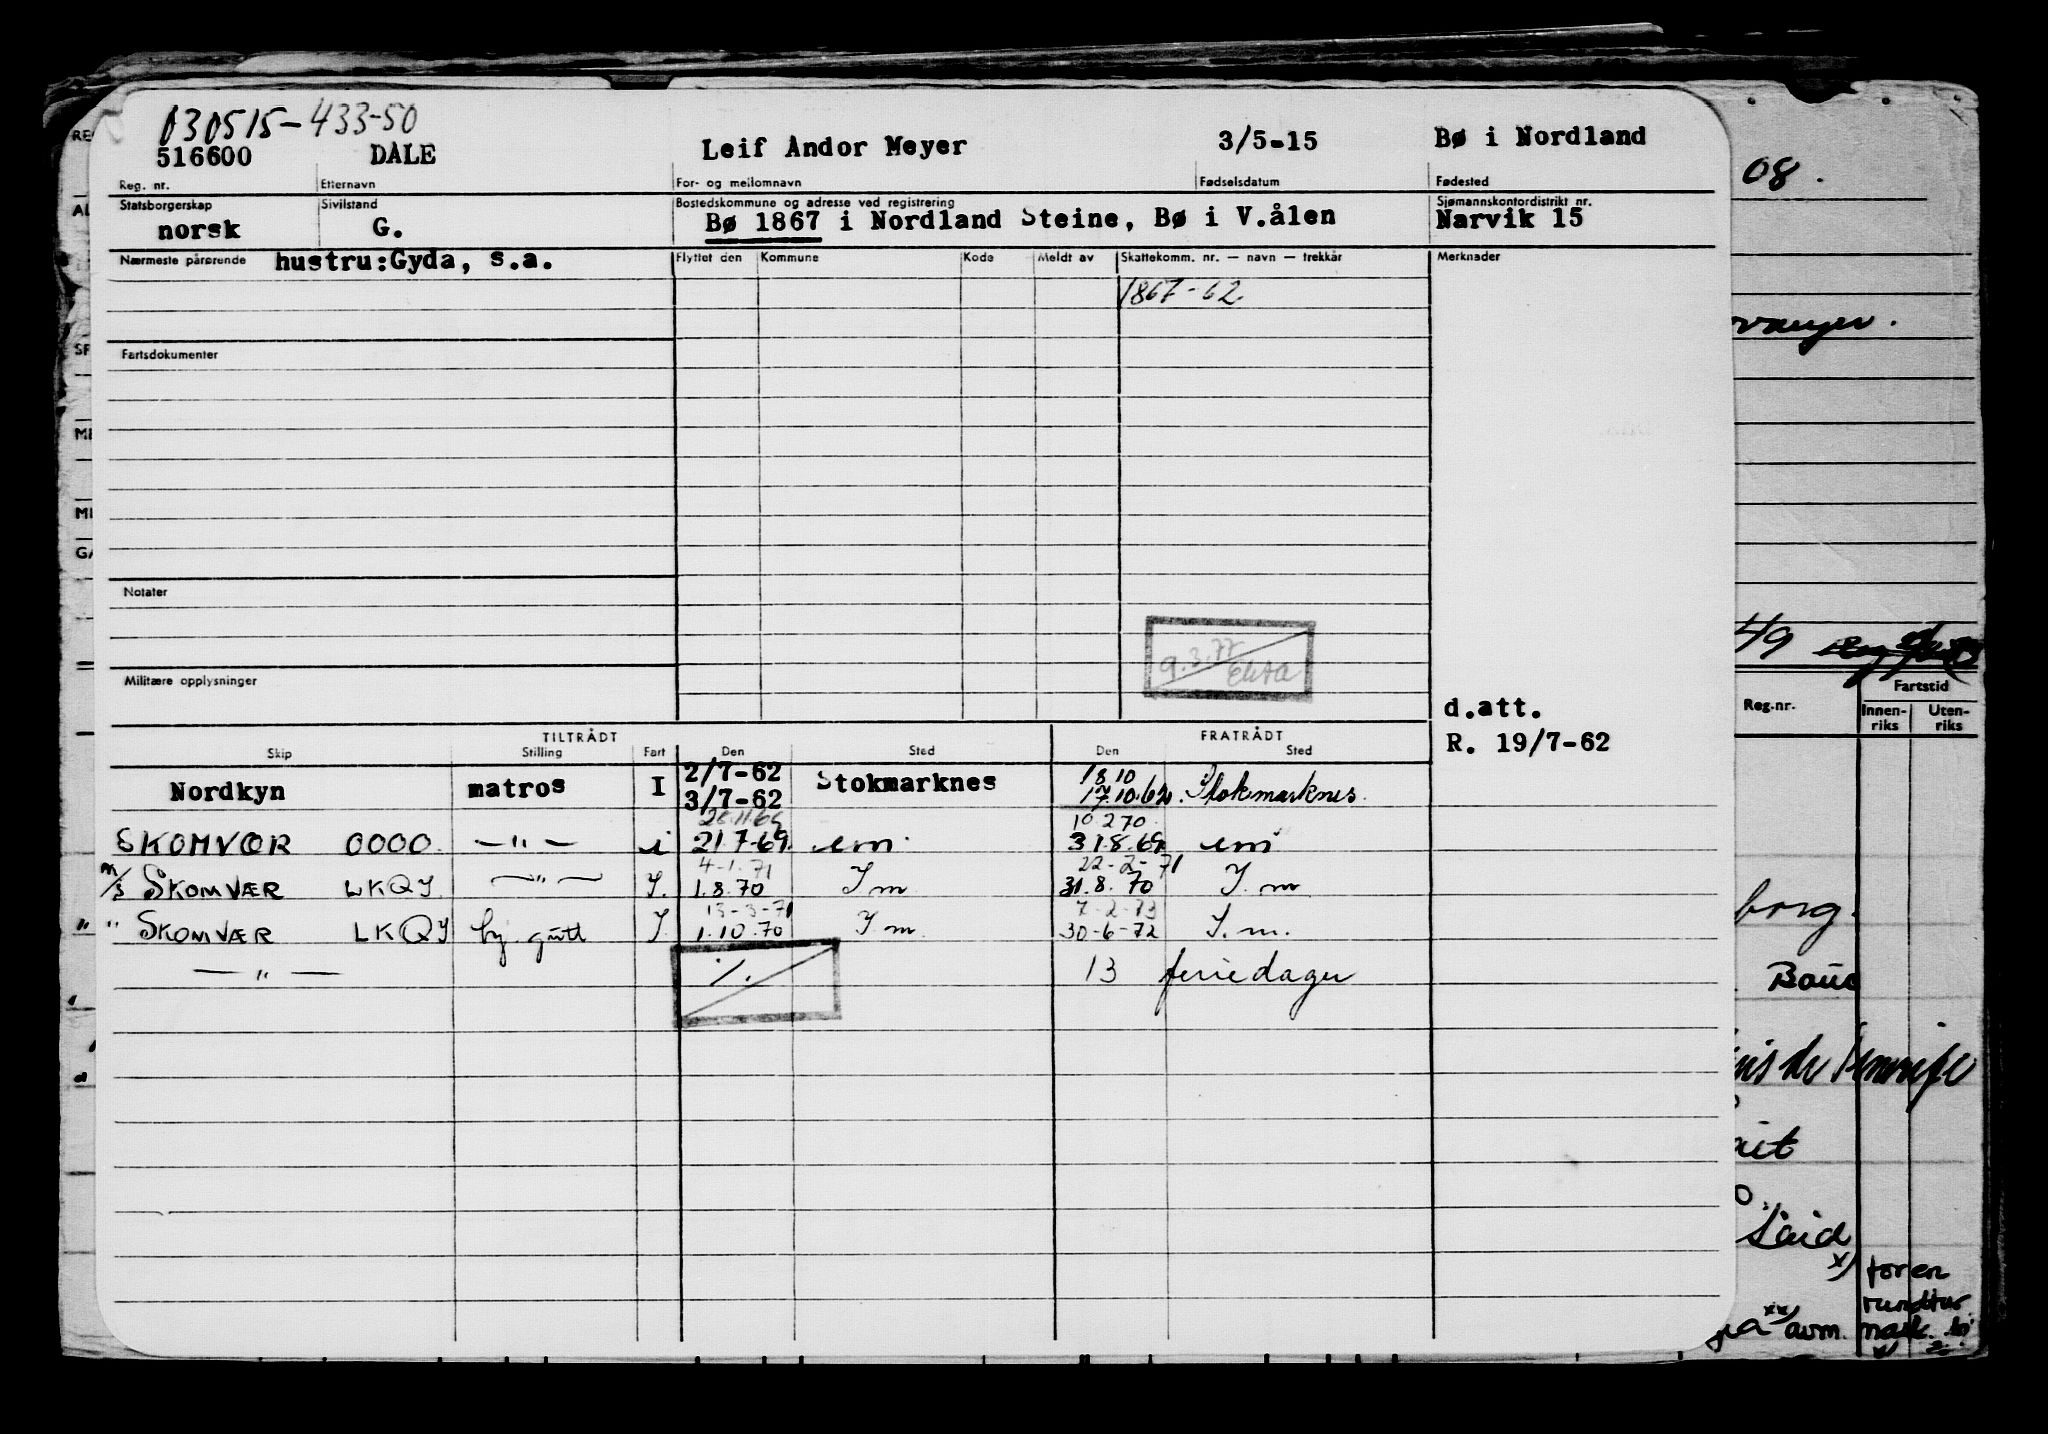 030515-433-50
516600 DALE Leif Andor Meyer 3/5-15 Bø i Nordland
Reg. nr. Etternavn For- og mellomnavn Fødselsdatum Fødested
Statsborgerskap Sivilstand Bostedskommune og adresse ved registrering Sjømannskontordistrikt nr.
norsk G. Bø 1867 i Nordland Steine, Bø i V.ålen Narvik 15
Nærmeste pårørende hustru:Gyda, s.a. Flyttet den Kommune Kode Meldt av Skattekomm. nr. — navn — trekkår Merknader
1867-62.
Fartsdokumenter
Notater
9.3.77
Militære opplysninger
d.att.
R. 19/7-62
TILTRÅDT FRATRÅDT
Skip Stilling Fart Den Sted Den Sted
Nordkyn matros I 2/7-62 Stokmarknes 18.10
3/7-62 17.10.62. Stokmarknes.
26.11.69 10.2.70
SKOMVŒR OOOO. —"— i 21.7-69. em. 31.8.69 em
4-1.71 22-2-71
m/s SKOMVÆR LKQY. —"— I. 1.8.70 I m 31.8.70 I. m
13-3-71 7-2-73
" SKOMVÆR LKQY by. gutt I. 1.10.70 I m. 30-6-72 I. m.
—"— ./. 13 feriedager
08.
49
Fartstid
Reg.nr. Innen-
riks Uten-
riks
borg.
Said
x) for en
rundtur
xx) avm. mask.